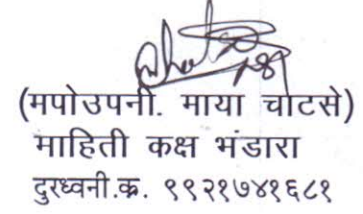 (मपोउपनी. माया चाटसे)
माहिती कक्ष भंडारा
दुरध्वनी.क्र. ९९२१७४१६८१